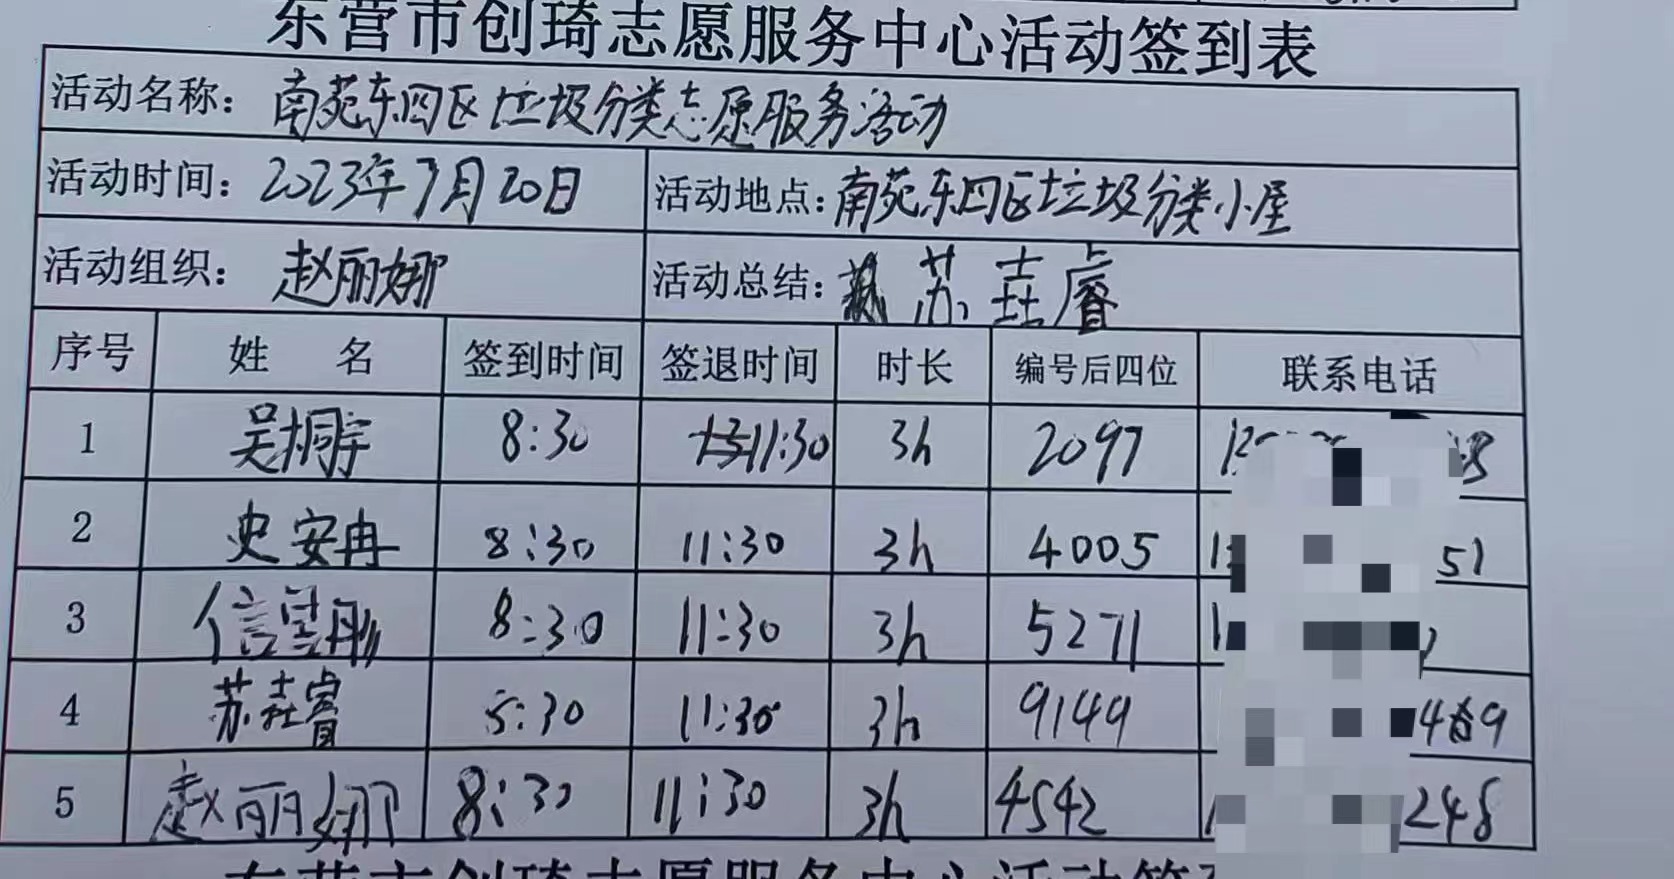 东营市创琦志愿服务中心活动签到表
活动名称: 南苑东四区垃圾分类志愿服务活动
活动时间: 2023年7月20日 活动地点: 南苑东四区垃圾分类小屋
活动组织: 赵丽娜 活动总结: 苏壵睿
序号 姓 名 签到时间 签退时间 时长 编号后四位 联系电话
1 吴桐宇 8:30 11:30 3h 2097
2 史安冉 8:30 11:30 3h 4005 51
3 信雪彤 8:30 11:30 3h 5271
4 苏壵睿 5:30 11:30 3h 9149
5 赵丽娜 8:30 11:30 3h 4542 248
东营市创琦志愿服务中心活动签到